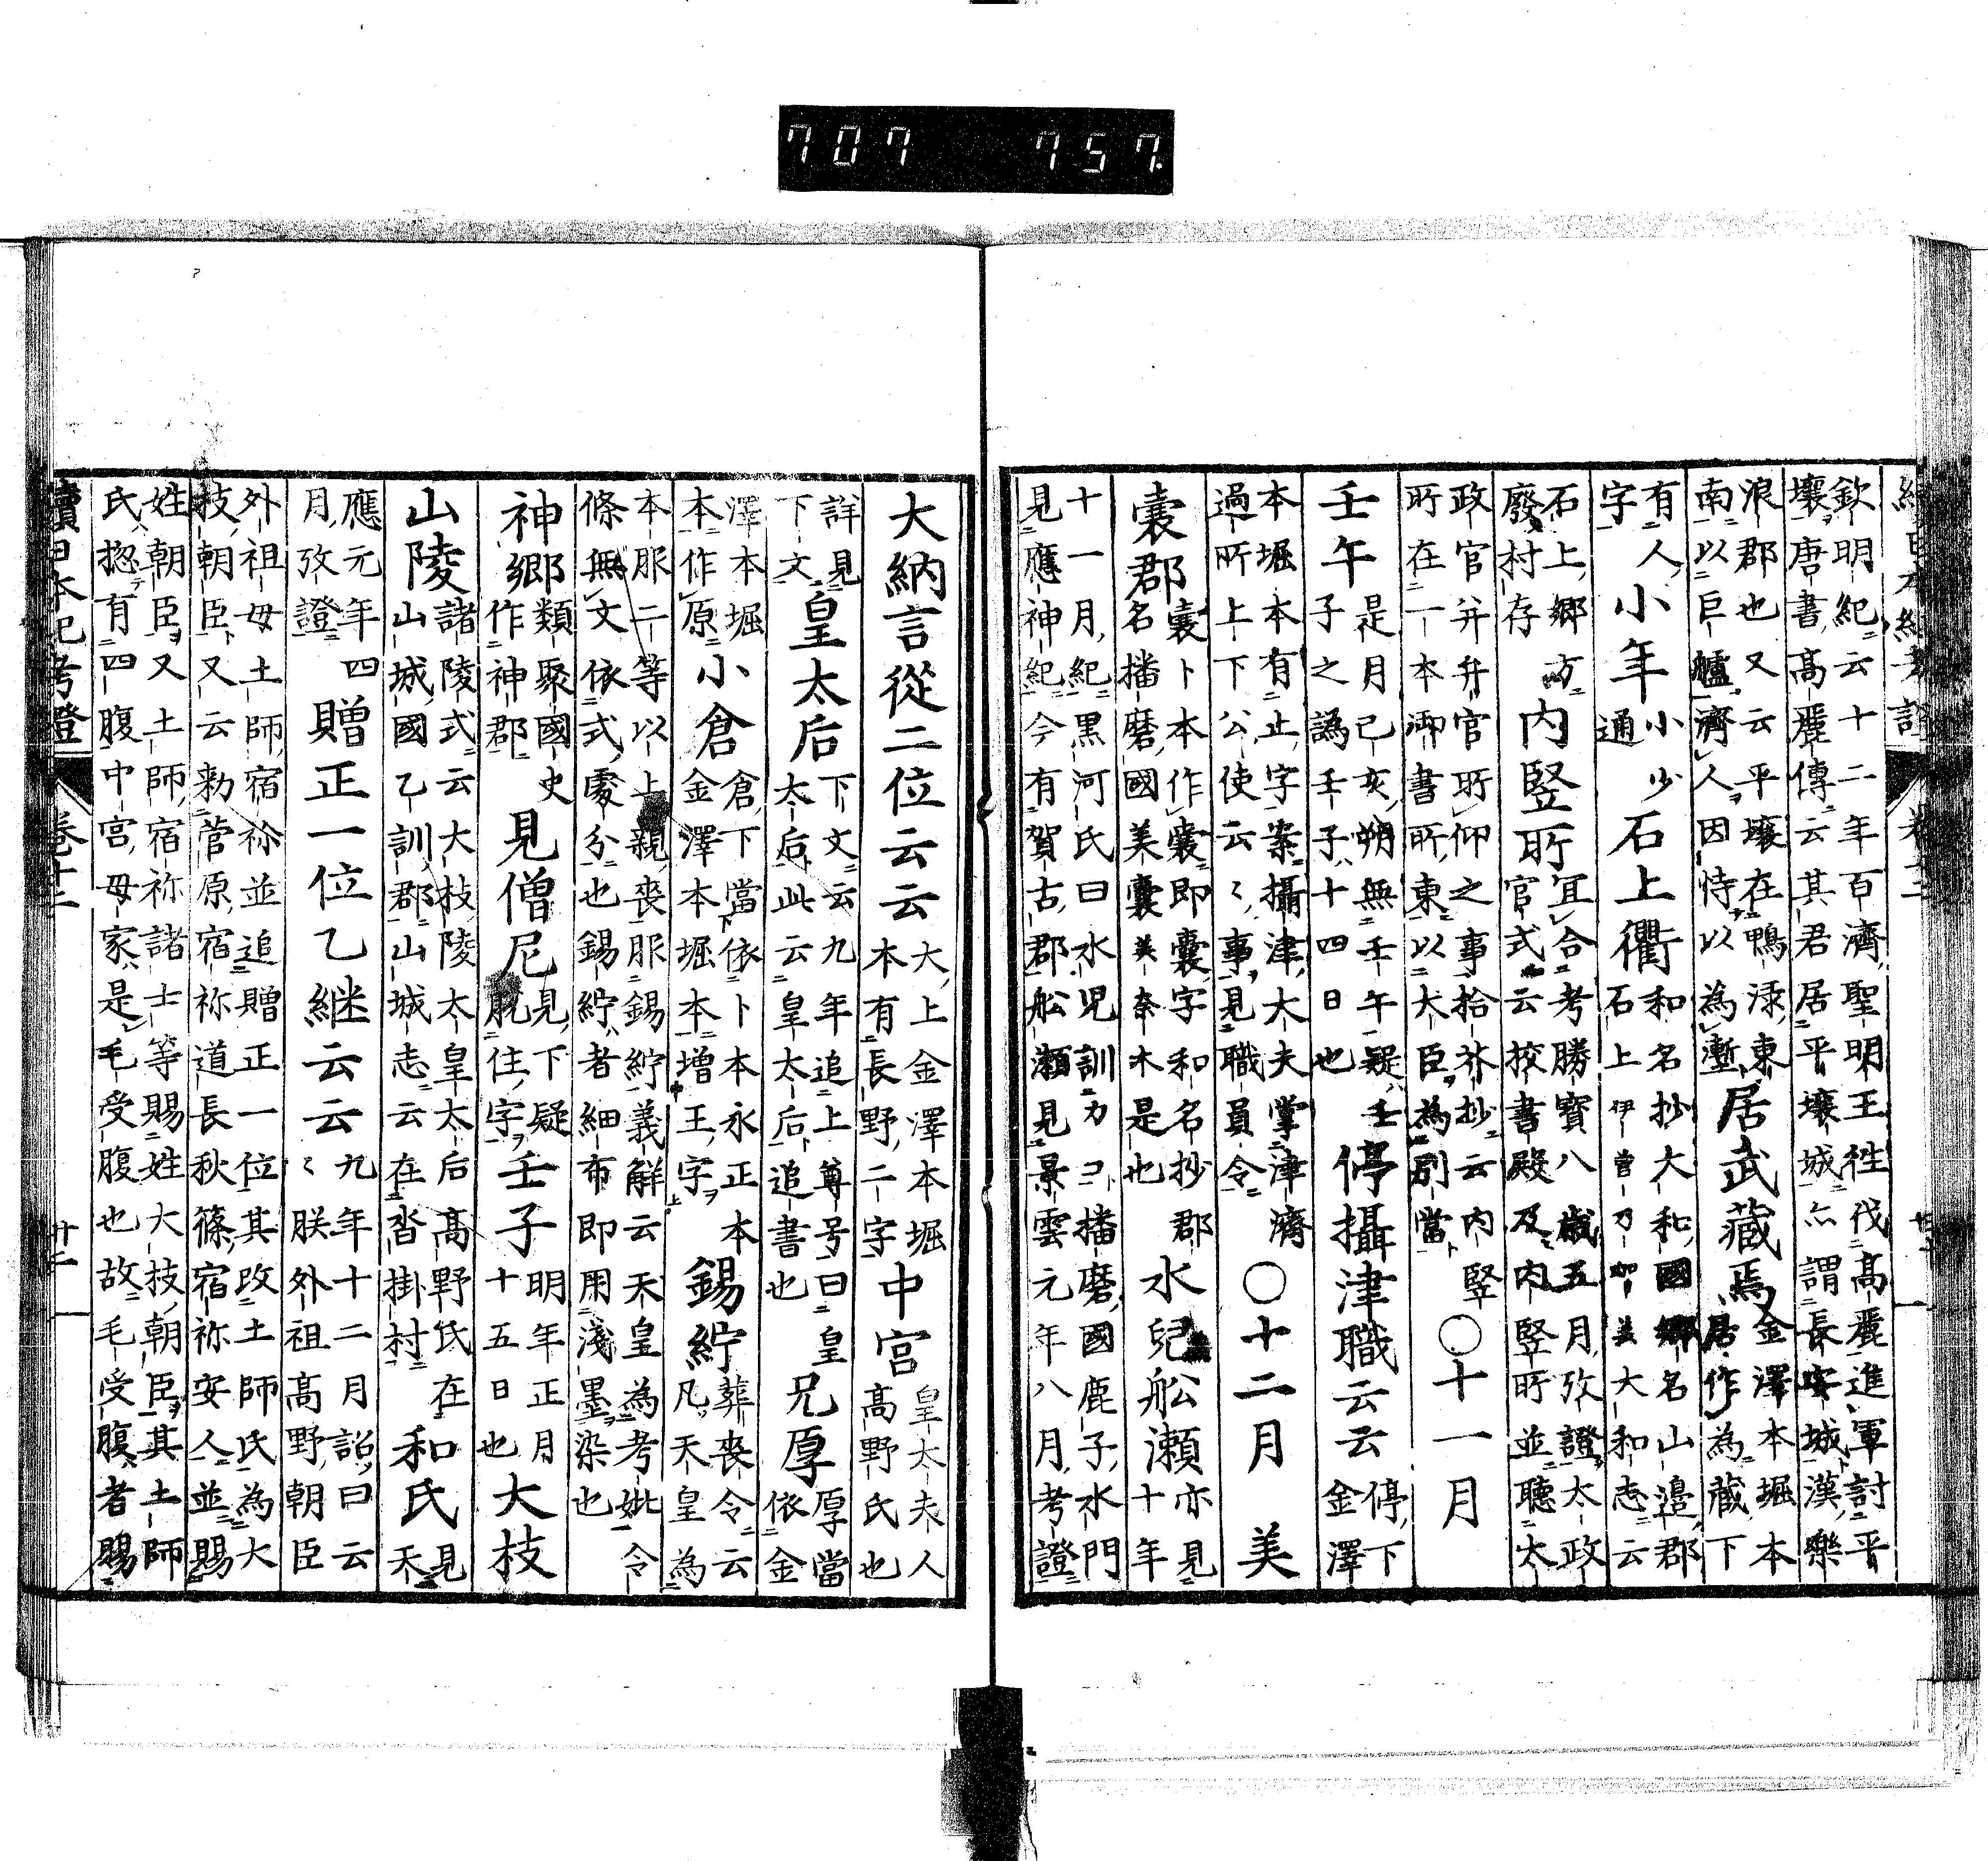 707 757.
欽明紀云十二年百濟聖明王往伐高麗進軍討平
壤唐書高麗傳云其君居平壤城亦謂長安城漢樂
浪郡也又云平壤在鴨淥東
南以巨艫濟人因恃以為塹居武藏焉金澤本堀本
居作為藏下
有人
字小年小少
通石上衢和名抄大和國鄉名山邊郡
石上伊曽乃加美大和志云
石上鄉方
廢村存內竪所宜合考勝寶八歳五月攷證太政
官式云挍書殿及內竪所並聽太
政官并弁官所仰之事拾芥抄云內竪
所在一本御書所東以大臣為別當〇十一月
壬午是月己亥朔無壬午疑壬
子之譌壬子十四日也停攝津職云云停下
金澤
本堀本有止字案攝津大夫掌津濟
過所上下公使云〻事見職員令〇十二月美
囊郡囊卜本作囊即囊字和名抄郡
名播磨國美囊美奈木是也水兒舩瀬亦見
十年
十一月紀黑河氏曰水児訓カコ播磨國鹿子水門
見應神紀今有賀古郡舩瀬見景雲元年八月考證
大納言從二位云云大上金澤本堀
本有長野二字中宮皇太夫人
高野氏也
詳見
下文皇太后下文云九年追上尊号曰皇
太后此云皇太后追書也兄厚厚當
依金
澤本堀
本作原小倉倉下當依卜本永正本
金澤本堀本增王字錫紵葬喪令云
凡天皇為
本服二等以上親喪服錫紵義解云天皇為考妣令
條無文依式處分也錫紵者細布即用淺墨染也
神鄉類聚國史
作神郡見僧尼見下疑
脫住字壬子明年正月
十五日也大枝
山陵諸陵式云大枝陵太皇太后高野氏在
山城國乙訓郡山城志云在沓掛村和氏見
天
應元年四
月攷證贈正一位乙継云云九年十二月詔曰云
〻朕外祖高野朝臣
外祖母土師宿祢並追贈正一位其改土師氏為大
枝朝臣又云勑菅原宿祢道長秋篠宿祢安人並賜
姓朝臣又土師宿祢諸士等賜姓大枝朝臣其土師
氏惣有四腹中宮母家是毛受腹也故毛受腹者賜
續日本紀考證 卷十二 廿二